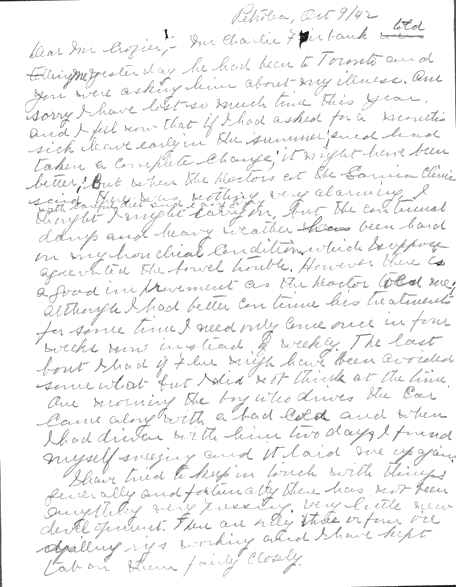 Petrolia, Oct 9/42
Dear Mr Crozier,- Mr Charlie Fairbank told
me yesterday he had been to Toronto and
you were asking him about my illness. Am
sorry I have lost so much time this year,
and I feel now that if I had asked for a months
sick leave early in the summer, and had
taken a complete change, it might have been
better, But when the Doctors at the Sarnia Clinic
said there was nothing very alarming, I
with careful diet and
thought I might carry on, but the continual
damp and heavy weather has been hard
on my bronchial condition which I suppose
agrevated the bowel trouble. However there is
a good improvement as the Doctor told me,
although I had better continue his treatments
for some time I need only come once in four
weeks now instead of weekly. The last
bout I had of Flu might have been avoided
somewhat but I did not think at the time.
One morning the boy who drives the Car
came along with a bad Cold and when
I had driven with him two days, I found
myself sneezing and it laid me up again.
I have tried to keep in touch with things
generally and fortunately there has not been
anything very pressing. Very little new
development. There are only three or four oil
drilling rigs working and I have kept
tab on them fairly closely.